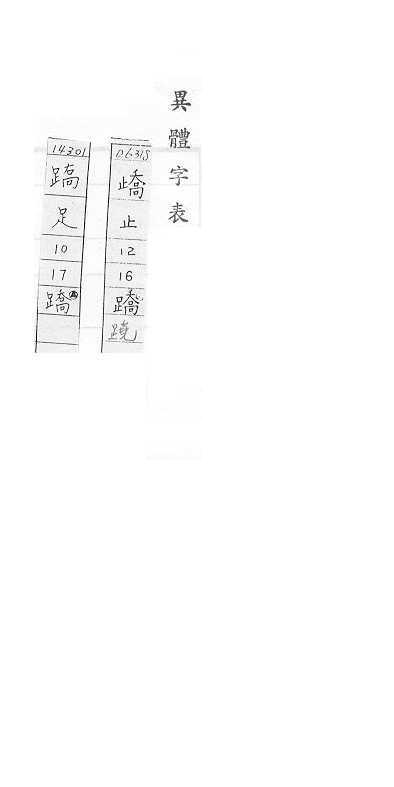 異體字表
止
12
16
蹻
蹺
14301
足
10
17
蹻